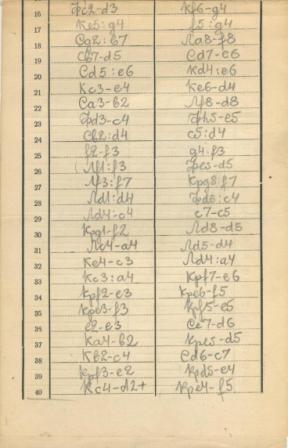 16 Фe2-d3 Kf6-g4
17 Ke5:g4 f5:g4
18 Cg2:b7 Ла8-f8
19 Cb7-d5 Cd7-e6
20 Cd5:e6 Kd4:e6
21 Kc3-e4 Ke6-d4
22 Ca3-b2 Лf8-d8
23 Фd3-c4 Фh5-e5
24 Cb2:d4 c5:d4
25 f2-f3 g4:f3
26 Лf1:f3 Фe5-d5
27 Лf3:f7 Kpg8:f7
28 Лd1:d4 Фd5:c4
29 Лd4:c4 c7-c5
30 Kpg1-f2 Лd8-d5
31 Лc4-a4 Лd5-d4
32 Ke4-c3 Лd4:a4
33 Kc3:a4 Kpf7-e6
34 Kpf2-e3 Kpe6-f5
35 Kpe3-f3 Kpf5-e5
36 e2-e3 Ce7-d6
37 Ka4-b2 Kpe5-d5
38 Kb2-c4 Cd6-c7
39 Kpf3-e2 Kpd5-e4
40 Kc4-d2+ Kpe4-f5